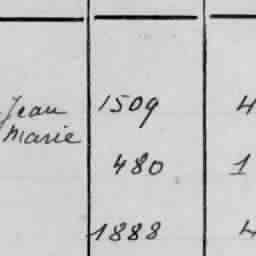 Jean 1509 4
Marie
480 1
1888 4